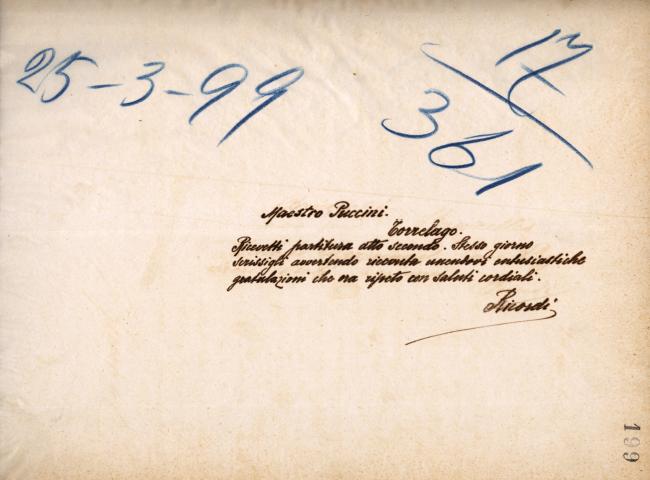 25-3-99
17/361
Maestro Puccini.
Torrelago.
Ricevetti partitura atto secondo. Stesso giorno
scrissigli avvertendo ricevuta unendovi entusiastiche
gratulazioni che ora ripeto con saluti cordiali.
Ricordi
199